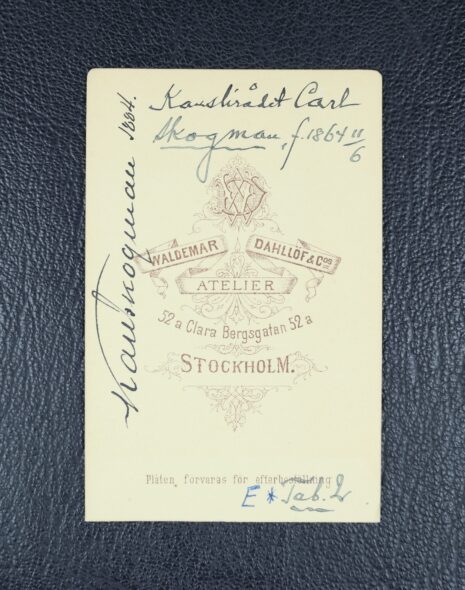 Kanslirådet Carl
Skogman, f. 1864 11/6
1884.
WALDEMAR DAHLLÖF & Cos
ATELIER
52 a Clara Bergsgatan 52 a
STOCKHOLM.
Plåten förvaras för efterbeställning
E * Tab. 2